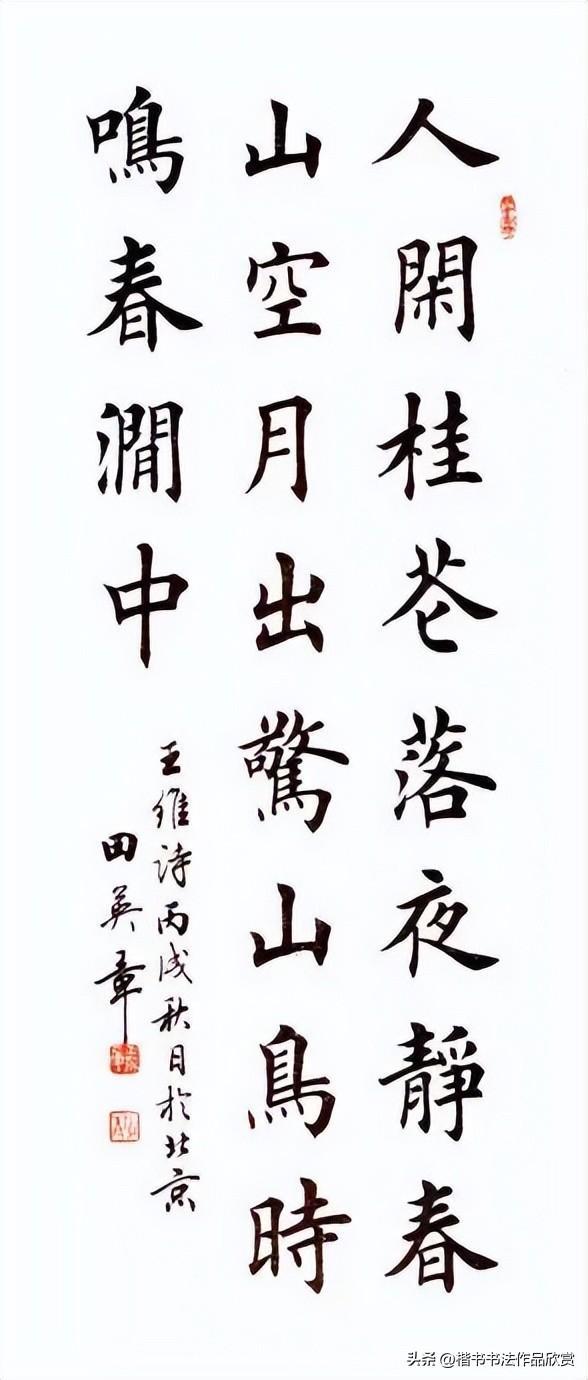 人閑桂花落夜靜春
山空月出驚山鳥時
鳴春澗中
王維詩丙戌秋日於北京
田英章
头条 @楷书书法作品欣赏